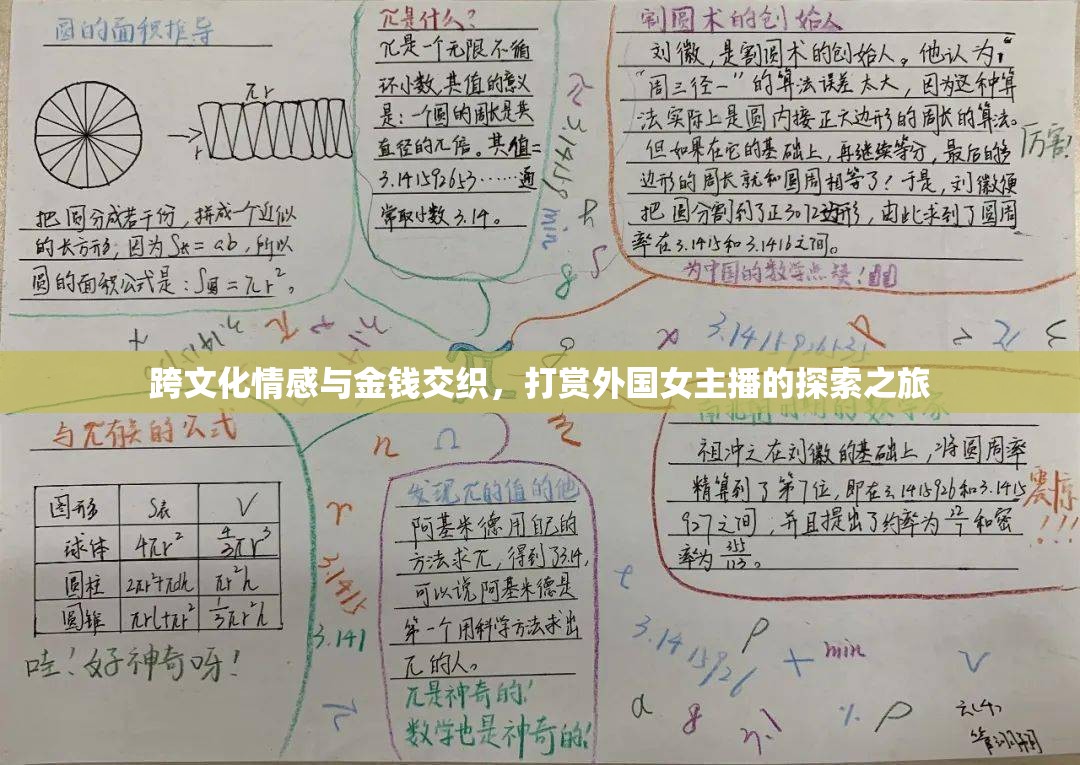 圆的面积推导
πr
r
把圆分成若干份，拼成一个近似
的长方形；因为S长=ab，所以
圆的面积公式是：S圆=πr²。
π是什么？
π是一个无限不循
环小数，其值的意义
是：一个圆的周长是其
直径的π倍。其值=
3.141592653……通
常取小数3.14。
割圆术的创始人
刘徽，是割圆术的创始人。他认为：
“周三径一”的算法误差太大，因为这种算
法实际上是圆内接正六边形的周长的算法。
但如果在它的基础上，再继续等分，最后的多
边形的周长就和圆周相等了！于是，刘徽便
把圆分割到了正3072边形，由此求到了圆周
率在3.1415和3.1416之间。
为中国的数学点赞！
厉害！
π 3.14159 min
3.1415926535
跨文化情感与金钱交织，打赏外国女主播的探索之旅
与π有关的公式
图形 S表 V
球体 4πr² 4/3πr³
圆柱 2πr²+πdh πr²h
圆锥 πrl+πr² 1/3πr²h
哇！好神奇呀！
3.1415
3.141
发现π的值的他
阿基米德用自己的
方法求π，得到了3.14，
可以说阿基米德是
第一个用科学方法求出
π的人。
π是神奇的！
数学也是神奇的！
祖冲之在刘徽的基础上，将圆周率
精算到了第7位，即在3.1415926和3.1415
927之间，并且提出了约率为22/7和密
率为355/113。
震惊！！！
3.1415926
ρ
+
min
V
a
g
%
ρ